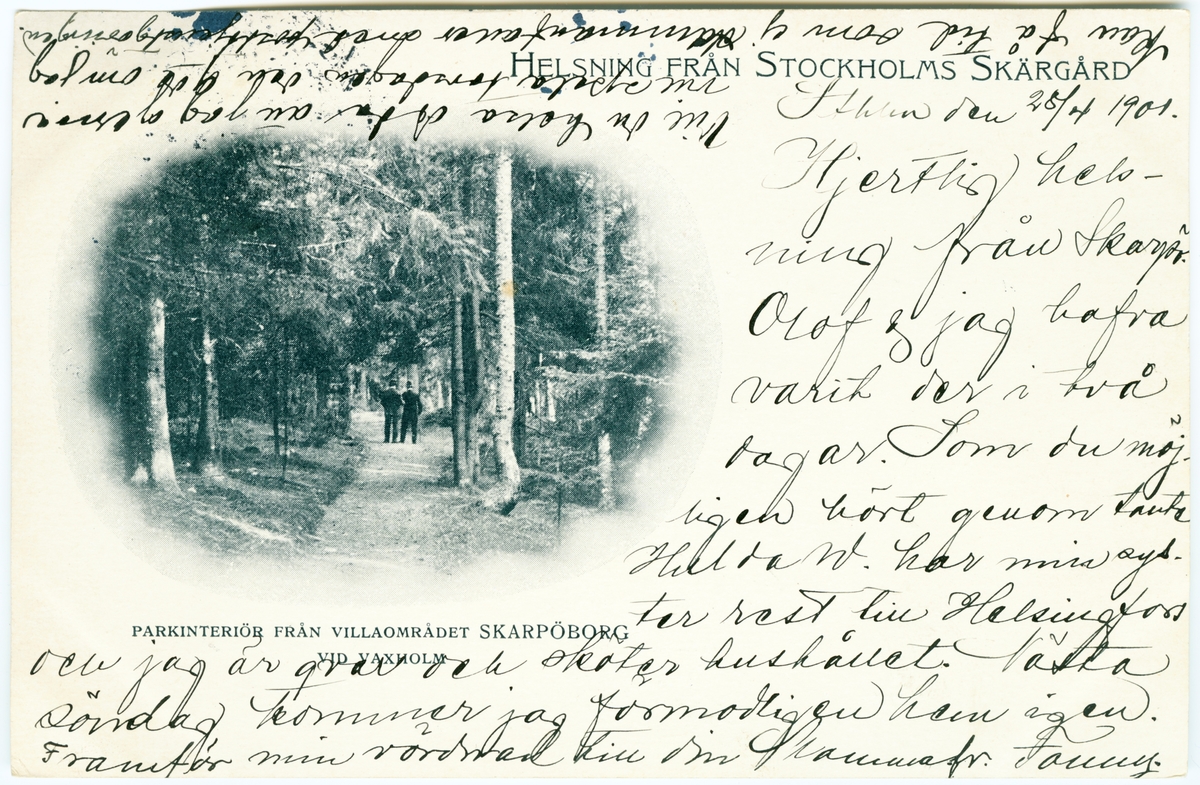 HELSNING FRÅN STOCKHOLMS SKÄRGÅRD
Sthlm den 28/4 1901.
Hjertlig hels-
ning från Skarpö.
Olof & jag hafva
varit der i två
dagar. Som du möj-
ligen hört genom tante
Hulda W. har min sys-
ter rest till Helsingfors
och jag är qvar och sköter hushållet. Nästa
söndag kommer jag förmodligen hem igen.
Framför min vördnad till din Mamma fr. Fanny.
PARKINTERIÖR FRÅN VILLAOMRÅDET SKARPÖBORG
VID VAXHOLM
Vill du helsa att jag gerna
vill till torsdagen och om jag
kan få tid som ej